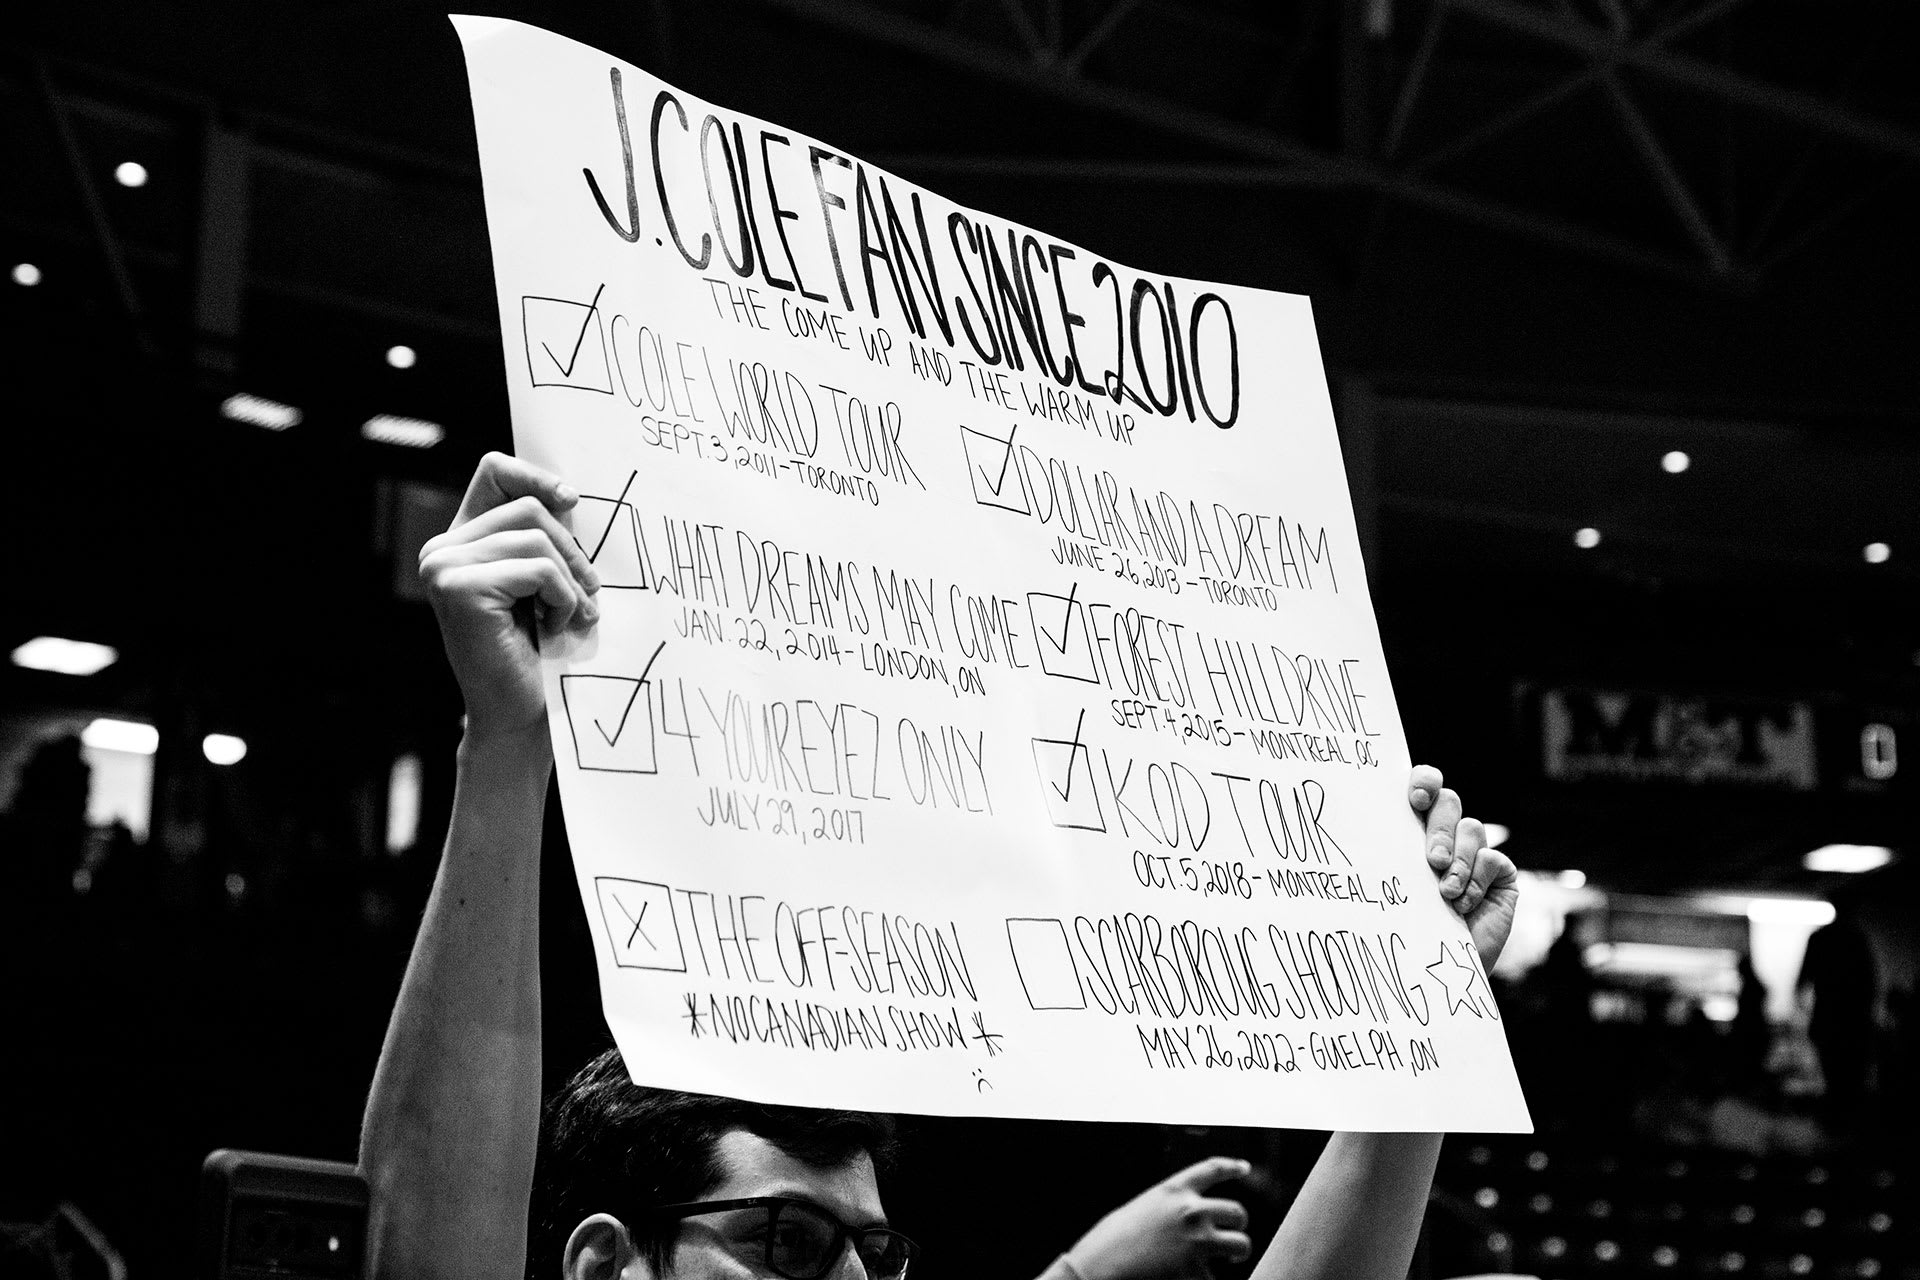 J. COLE FAN SINCE 2010
THE COME UP AND THE WARM UP
COLE WORLD TOUR
SEPT. 3, 2011 - TORONTO
DOLLAR AND A DREAM
JUNE 26, 2013 - TORONTO
WHAT DREAMS MAY COME
JAN. 22, 2014 - LONDON, ON
FOREST HILL DRIVE
SEPT. 4, 2015 - MONTREAL, QC
4 YOUR EYEZ ONLY
JULY 29, 2017
KOD TOUR
OCT. 5, 2018 - MONTREAL, QC
THE OFF-SEASON
*NO CANADIAN SHOW*
:(
SCARBOROUG SHOOTING ☆'S
MAY 26, 2022 - GUELPH, ON